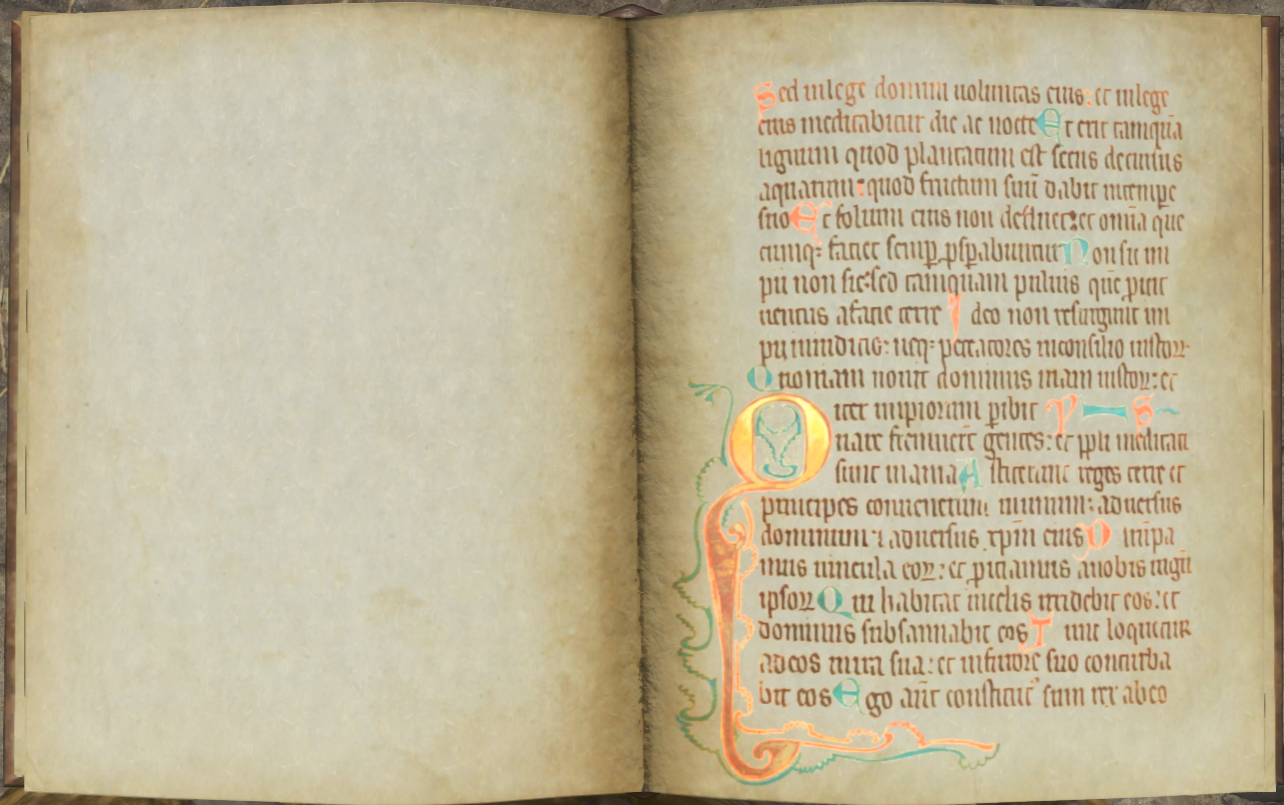 Sed inlege domini uoluntas eius: et inlege
eius meditabitur die ac nocte Et erit tamquā
lignum quod plantatum est secus decursus
aquarum: quod fructum suū dabit intempe
stio Et folium eius non defluet: et omīa que
cumq: faciet semp̲ p̲sp̲abuntur Non sic im
pii non sic: sed tamquam puluis quē p̲icit
uentus afacie terre Ideo non resurgunt im
pii iniudicio: neq: peccatores inconsilio iustoꝝ
Quoniam nouit dominus uiam iustoꝝ: et
iter impiorum p̲ibit P S
Quare fremuert gentes: et pp̄li meditati
sunt inania Astiterunt reges terre et
principes conuenerunt inunum: aduersus
dominum: aduersus xp̄m eius Dirūpa
mus uincula eoꝝ: et p̲iciamus anobis iugū
ipsoꝝ Qui habitat incelis irridebit eos: et
dominus subsannabit eos Tunc loquetur
ad eos inira sua: et infurore suo conturba
bit eos Ego aūt constitut᾽ sum rex abeo